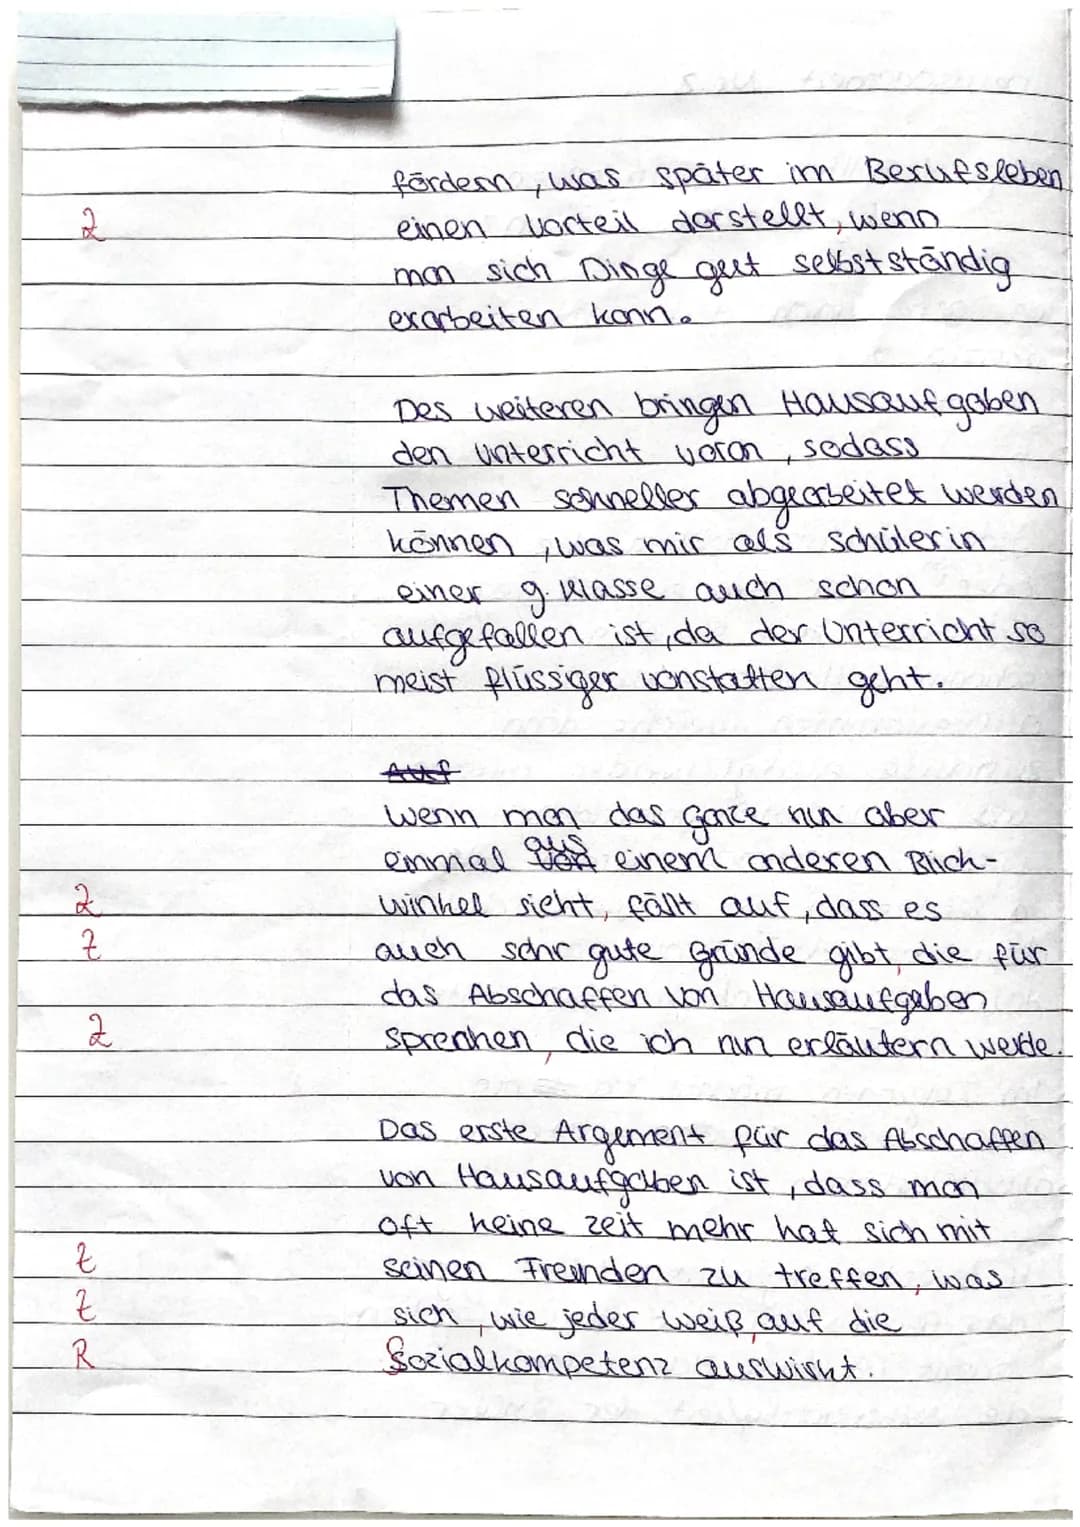 fördern, was später im Berufsleben
Z einen Vorteil darstellt, wenn
man sich Dinge gut selbstständig
erarbeiten kann.
Des weiteren bringen Hausaufgaben
den Unterricht voran, sodass
Themen schneller abgearbeitet werden
können, was mir als Schülerin
einer 9. Klasse auch schon
aufgefallen ist, da der Unterricht so
meist flüssiger vonstatten geht.
Auf
Wenn man das ganze nun aber
einmal von aus einem anderen Blick-
Z winkel sieht, fällt auf, dass es
Z auch sehr gute Gründe gibt, die für
das Abschaffen von Hausaufgaben
Z sprechen, die ich nun erläutern werde.
Das erste Argement für das Abschaffen
von Hausaufgaben ist, dass man
oft keine Zeit mehr hat sich mit
Z seinen Freunden zu treffen, was
Z sich, wie jeder weiß, auf die
R Sozialkompetenz auswirkt.